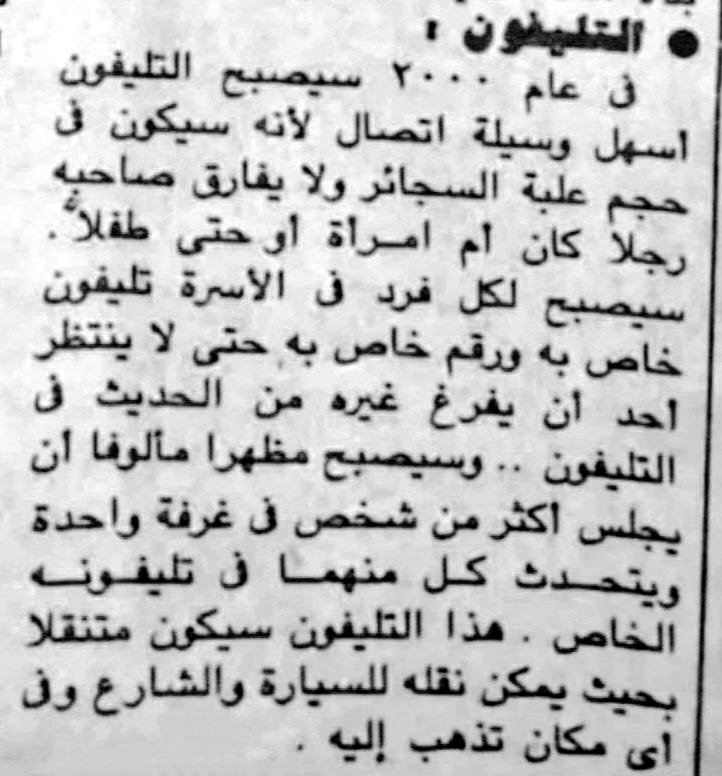 ● التليفون :
فى عام ٢٠٠٠ سيصبح التليفون
أسهل وسيلة اتصال لأنه سيكون فى
حجم علبة السجائر ولا يفارق صاحبه
رجلا كان أم امرأة أو حتى طفلاً .
سيصبح لكل فرد فى الأسرة تليفون
خاص به ورقم خاص به حتى لا ينتظر
أحد أن يفرغ غيره من الحديث فى
التليفون .. وسيصبح مظهرا مألوفا أن
يجلس أكثر من شخص فى غرفة واحدة
ويتحدث كل منهما فى تليفونه
الخاص . هذا التليفون سيكون متنقلا
بحيث يمكن نقله للسيارة والشارع وفى
أى مكان تذهب إليه .